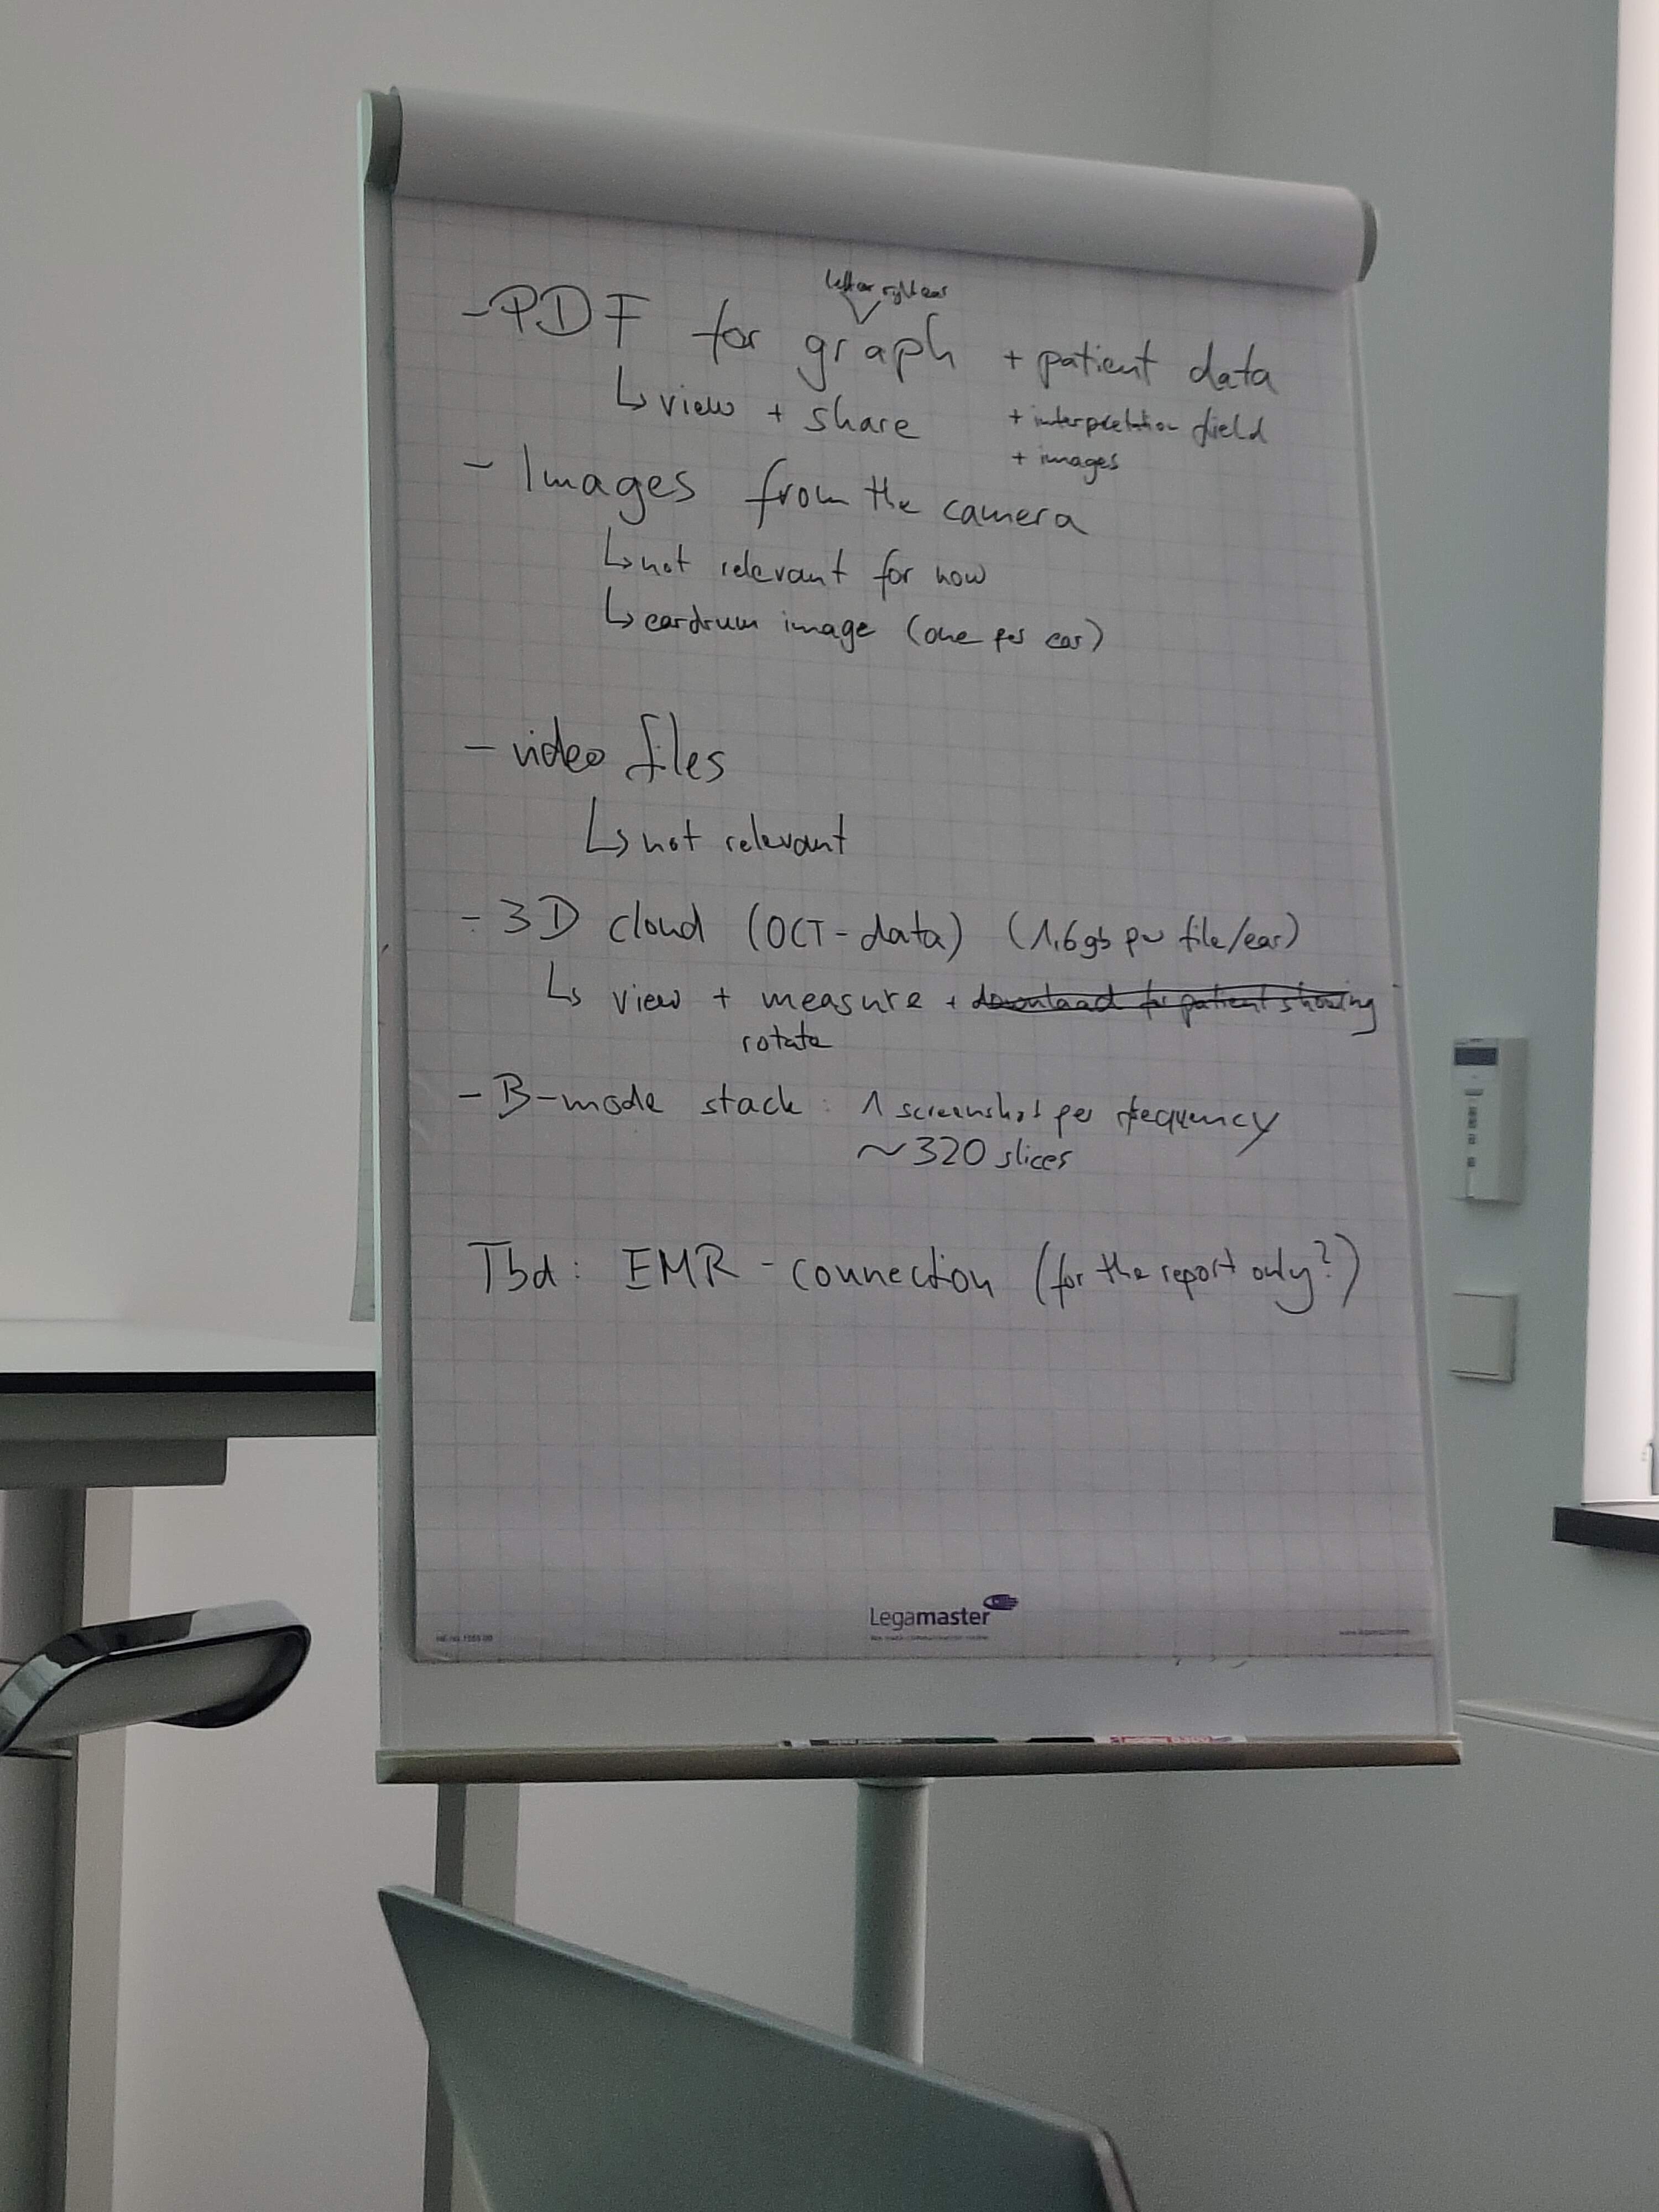 left or right ear
- PDF for graph + patient data
↳ view + share + interpretation field
+ images
- Images from the camera
↳ not relevant for now
↳ eardrum image (one per ear)
- video files
↳ not relevant
- 3D cloud (OCT-data) (1,6gb per file/ear)
↳ view + measure + download for patient showing
rotate
- B-mode stack : 1 screenshot per frequency
~320 slices
Tbd: EMR - connection (for the report only?)
Legamaster